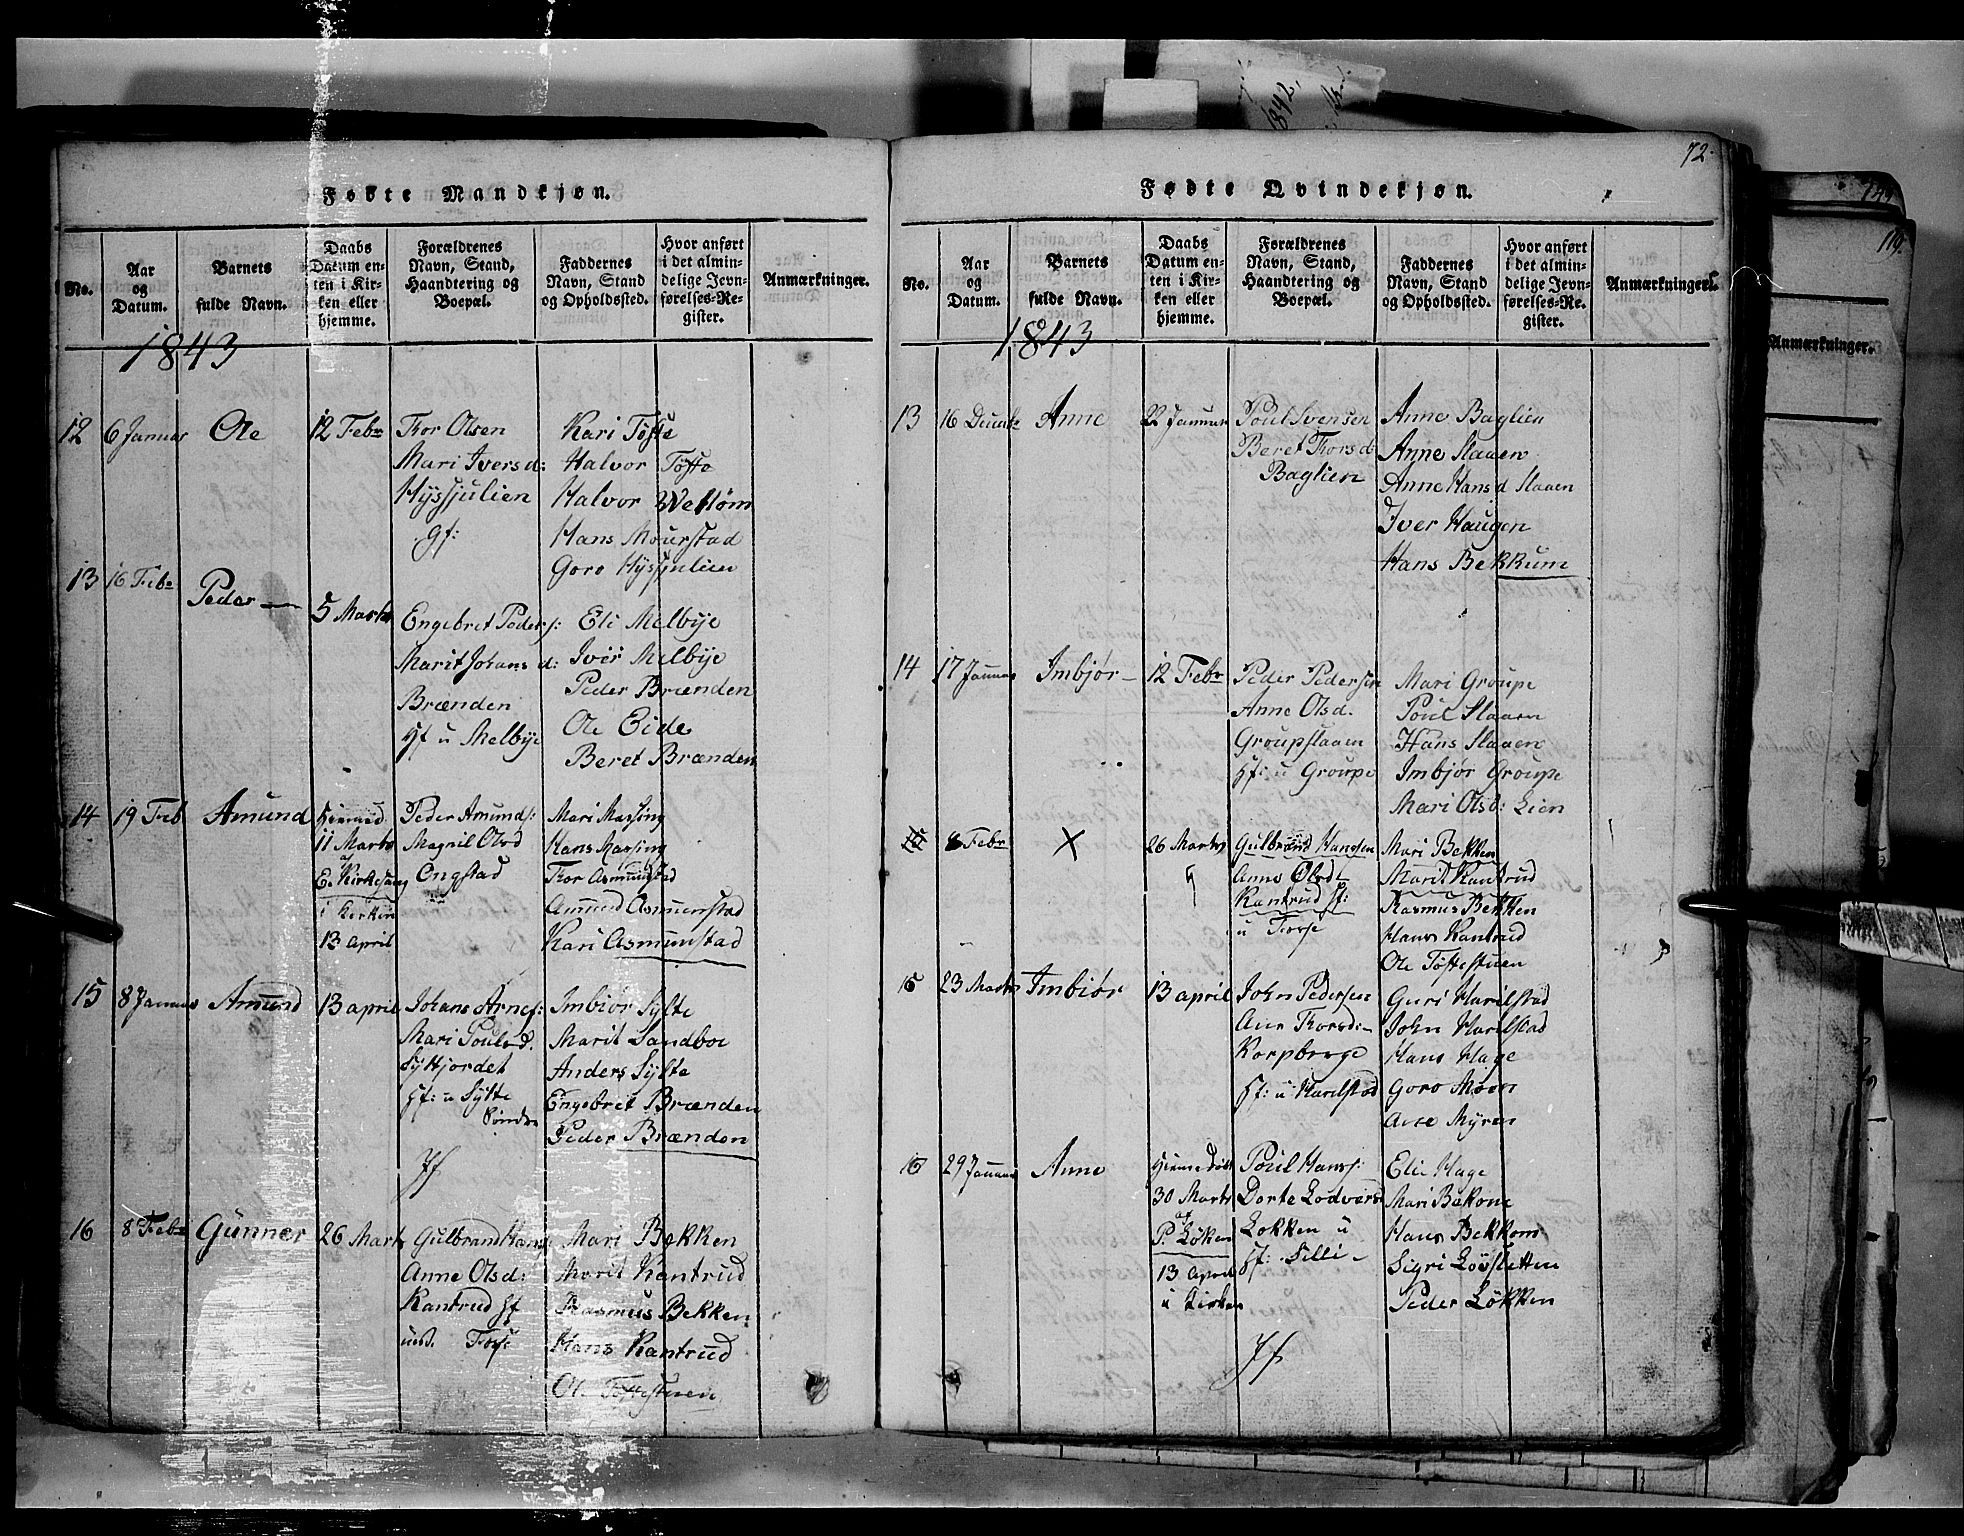 Fødte Mandkjøn.
No.
Aar og Datum.
Barnets fulde Navn.
Daabs Datum enten i Kirken eller hjemme.
Forældrenes Navn, Stand, Haandtering og Boepæl.
Faddernes Navn, Stand og Opholdssted.
Hvor anført i det almindelige Jevnførelses-Register.
Anmærkninger.
1843
12 6 Januar Ole 12 Febr
Thor Olsen
Mari Iversd:
Hyssjulien
gf:
Kari Tofte
Halvor Tofte
Halvor
Hans Mourstad
Goro Hyssjulien
13 16 Febr Peder 5 Marts
Engebret Peders:
Marit Johansd:
Brænden
gf u Melbye
Eli Melbye
Iver Melbye
Peder Brænden
Ole Eide
Beret Brænden
14 19 Feb Amund
11 Marts
E. Kirkesang
i Kirken
13 April
Peder Amunds:
Magnil Olsd
Engstad
Mari Massing
Hans Massing
Thor Asmunstad
Amund Asmunstad
Kari Asmunstad
15 8 Januar Amund 13 april
Johans Arnes:
Mari Poulsd.
Syltjordet
gf: u Sylte
Søndre
Imbiør Sylte
Marit Sandboe
Anders Sylte
Engebret Brænden
Peder Brænden
16 8 Febr Gunner 26 Marts
Gulbrand Hans
Anne Olsd:
Kantrud gf
und. Forse
Mari Bekken
Marit Kantrud
Rasmus Bekken
Hans Kantrud
Ole Toftestuen
72.
Fødte Qvindekjøn.
No.
Aar og Datum.
Barnets fulde Navn.
Daabs Datum enten i Kirken eller hjemme.
Forældrenes Navn, Stand, Haandtering og Boepæl.
Faddernes Navn, Stand og Opholdssted.
Hvor anført i det almindelige Jevnførelses-Register.
Anmærkninger.
1843
13 16 Decembr Anne 22 Januar
Poul Svensen
Beret Thorsd:
Baglien
Anne Baglien
Anne Slaaen
Anne Hansd Slaaen
Iver Haugen
Hans Bekkum
14 17 Januar Imbjør 12 Febr
Peder Pedersen
Anne Olsd.
Groupslaaen
gf: u Groupe
Mari Groupe
Poul Slaaen
Hans Slaaen
Imbjør Groupe
Mari Olsd: Lien
8 Febr X 26 Marts
Gulbrand Hansen
Anne Olsd
Kantrud gf:
u Forse
Mari Bekken
Marit Kantrud
Rasmus Bekken
Hans Kantrud
Ole Toftestuen
15 23 Marts Imbiør 13 april
John Pedersen
Ane Thorsd:
Korpberge
gf: u Harilstad
Guri Harilstad
John Harilstad
Hans Hage
Goro Moen
Ane Myren
16 29 Januar Anne
Hiemmedøbt
30 Marts
af
P Løken
13 April
u Kirken
Poul Hanss:
Dorte Lodversd
Løkken u
gf: Silli
Elie Hage
Mari Bekone
Hans Bekkom
Sigri Løvsletten
Peder Løkken
1842,
119.
Anmærkninger.